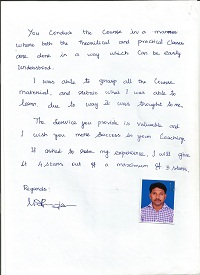 You Conduct the Course in a manner
where both the theoritical and practical classes
are done in a way which can be easily
understood.
I was able to grasp all the course
material, and retain what I was able to
learn, due to way it was thought to me.
The Service you provide is Valuable and
I wish you more success in your Coaching.
If asked to rate my experience, I will give
it 4 stars out of a maximum of 5 stars.
Regards,